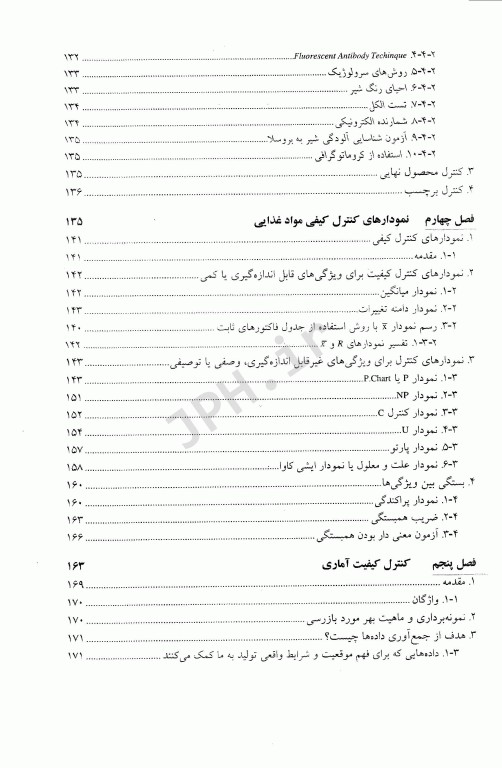 ۲-۴-۴. Fluorescent Antibody Techinque ۱۳۲
۲-۴-۵. روش‌های سرولوژیک ۱۳۳
۲-۴-۶. احیای رنگ شیر ۱۳۳
۲-۴-۷. تست الکل ۱۳۴
۲-۴-۸. شمارنده الکترونیکی ۱۳۴
۲-۴-۹. آزمون شناسایی آلودگی شیر به بروسلا ۱۳۵
۲-۴-۱۰. استفاده از کروماتوگرافی ۱۳۵
۳. کنترل محصول نهایی ۱۳۵
۴. کنترل برچسب ۱۳۶
فصل چهارم نمودارهای کنترل کیفی مواد غذایی ۱۳۵
۱. نمودارهای کنترل کیفی ۱۴۱
۱-۱. مقدمه ۱۴۱
۲. نمودارهای کنترل کیفیت برای ویژگی‌های قابل اندازه‌گیری یا کمی ۱۴۲
۲-۱. نمودار میانگین ۱۴۲
۲-۲. نمودار دامنه تغییرات ۱۴۳
۲-۳. رسم نمودار x̄ با روش استفاده از جدول فاکتورهای ثابت ۱۴۰
۲-۳-۱. تفسیر نمودارهای R و x̄ ۱۴۲
۳. نمودارهای کنترل برای ویژگی‌های غیرقابل اندازه‌گیری، وصفی یا توصیفی ۱۴۳
۳-۱. نمودار P یا P.Chart ۱۴۳
۳-۲. نمودار NP ۱۵۱
۳-۳. نمودار کنترل C ۱۵۲
۳-۴. نمودار U ۱۵۴
۳-۵. نمودار پارتو ۱۵۷
۳-۶. نمودار علت و معلول یا نمودار ایشی کاوا ۱۵۸
۴. بستگی بین ویژگی‌ها ۱۶۰
۴-۱. نمودار پراکندگی ۱۶۰
۴-۲. ضریب همبستگی ۱۶۳
۴-۳. آزمون معنی دار بودن همبستگی ۱۶۶
فصل پنجم کنترل کیفیت آماری ۱۶۳
۱. مقدمه ۱۶۹
۱-۱. واژگان ۱۷۰
۲. نمونه‌برداری و ماهیت بهر مورد بازرسی ۱۷۰
۳. هدف از جمع‌آوری داده‌ها چیست؟ ۱۷۱
۳-۱. داده‌هایی که برای فهم موقعیت و شرایط واقعی تولید به ما کمک می‌کنند ۱۷۱
JPH.ir